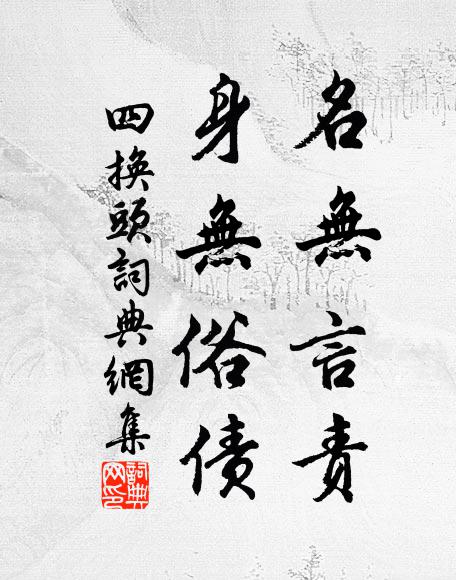 名無言責
身無俗債
四換頭詞典網集
詞典網印